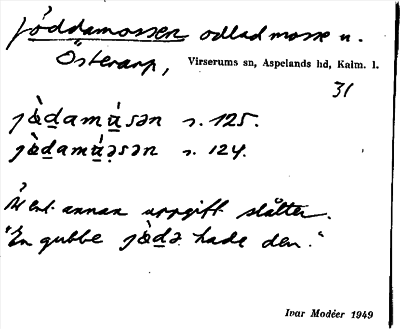 Jöddamossen odlad mosse n.
Österarp, Virserums sn, Aspelands hd, Kalm. l.
31
s. 125.
s. 124.
Enl. annan uppgift slåtter.
"En gubbe hade den."
Ivar Modéer 1949